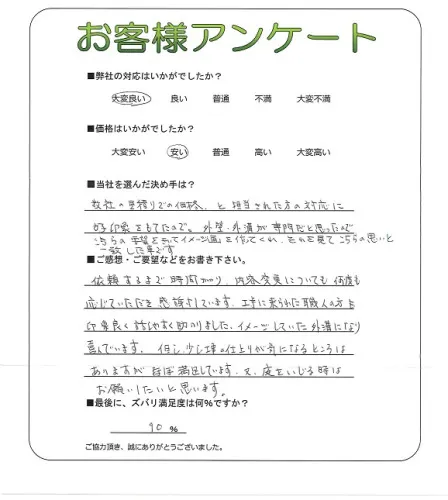 お客様アンケート
■弊社の対応はいかがでしたか？
大変良い 良い 普通 不満 大変不満
■価格はいかがでしたか？
大変安い 安い 普通 高い 大変高い
■当社を選んだ決め手は？
数社の見積りでの価格、と担当された方の対応に
好印象をもてたので。外壁・外溝が専門だと思ったので
こちらの希望をきいてイメージ画を作ってくれ、それを見てこちらの思いと
一致した事です
■ご感想・ご要望などをお書き下さい。
依頼するまで時間かかり、内容変更についても何度も
応じていただき感謝しています。工事に来られた職人の方も
印象良く話やすく助かりました、イメージしていた外溝になり
喜んでいます。但し、少し の仕上りが気になるところは
ありますがほぼ満足しています。又、庭をいじる時は
お願いしたいと思います。
■最後に、ズバリ満足度は何％ですか？
90 %
ご協力頂き、誠にありがとうございました。